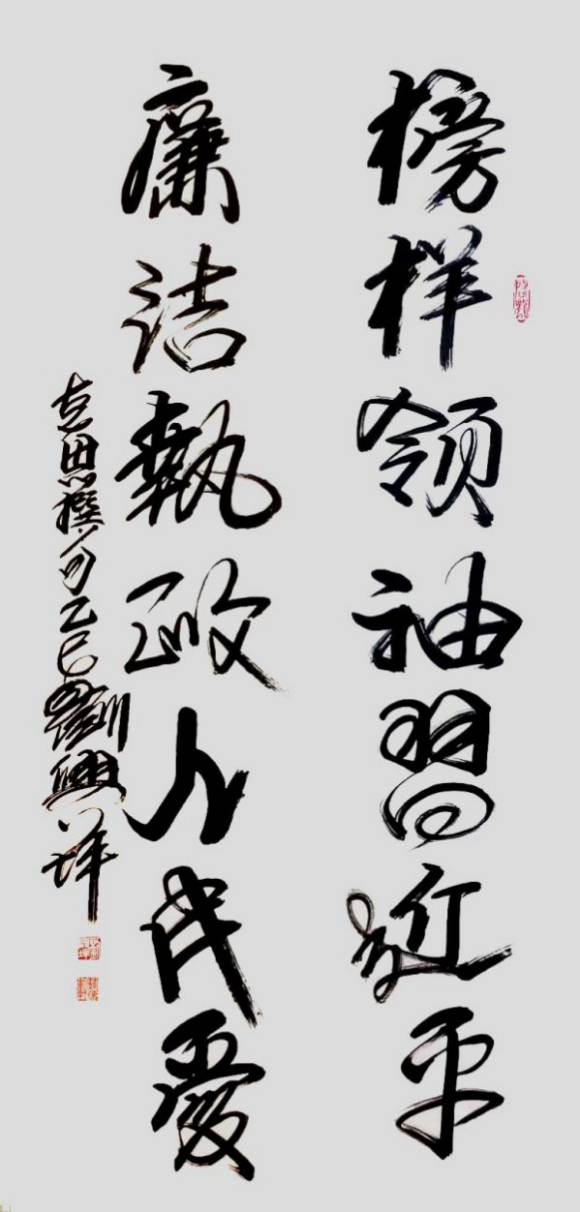 榜样领袖習近平
廉洁執政人民愛
志思撰句乙巳劉興祥